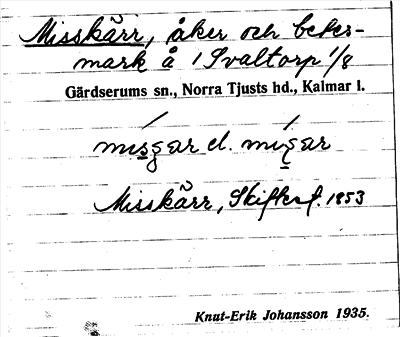 Misskärr, åker och betes-
mark å 1 Svaltorp 1/8
Gärdserums sn., Norra Tjusts hd., Kalmar l.
misgar el. migar
Misskärr, Skiftesf. 1853
Knut-Erik Johansson 1935.